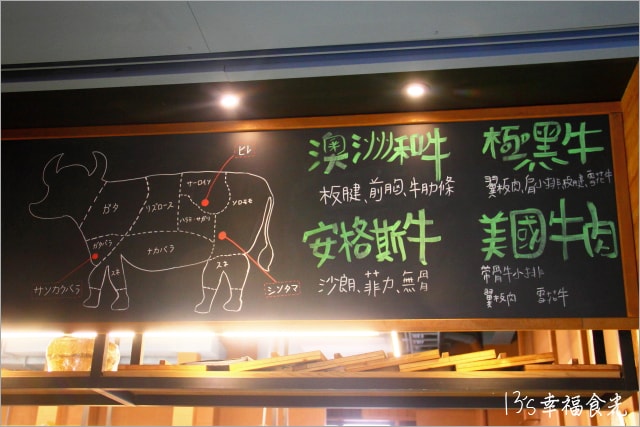 ヒレ
サーロイン
カタ
リブロース
ハラミ・サガリ
ソトモモ
カタバラ
ナカバラ
スネ
スネ
サンカクバラ
シンタマ
澳洲和牛
板腱、前胸、牛肋條
安格斯牛
沙朗、菲力、無骨
極黑牛
翼板肉、肩小排、板腱、雪花牛
美國牛肉
帶骨牛小排
翼板肉 雪花牛
13's幸福食光